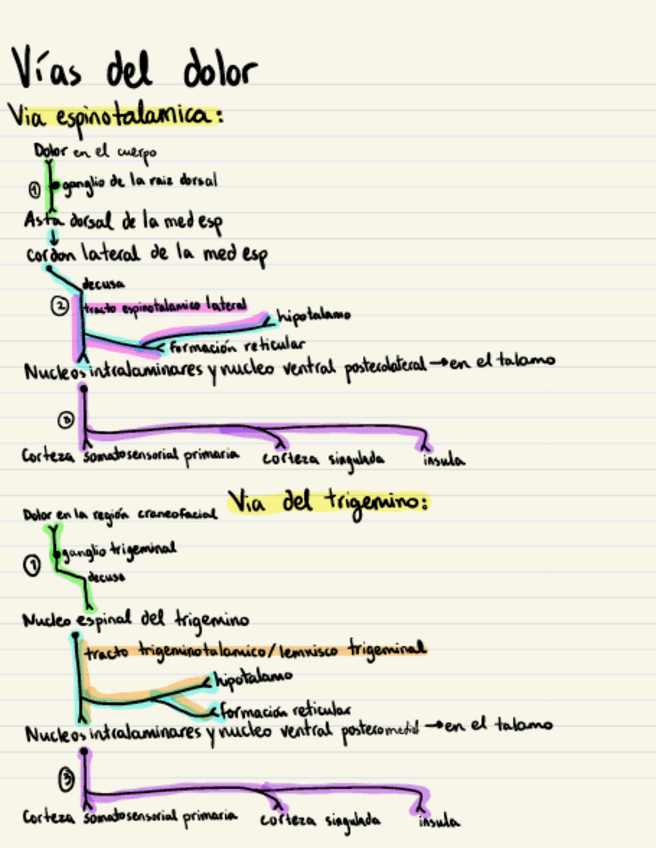 Vías del dolor
Via espinotalamica:
Dolor en el cuerpo
① ganglio de la raiz dorsal
Asta dorsal de la med esp
↓
Cordon lateral de la med esp
decusa
② tracto espinotalamico lateral
hipotalamo
formación reticular
Nucleos intralaminares y nucleo ventral posterolateral → en el talamo
③
Corteza somatosensorial primaria corteza singulada insula
Via del trigemino:
Dolor en la región craneofacial
ganglio trigeminal
①
decusa
Nucleo espinal del trigemino
tracto trigeminotalamico/lemnisco trigeminal
hipotalamo
formación reticular
Nucleos intralaminares y nucleo ventral posteromedial → en el talamo
③
Corteza somatosensorial primaria corteza singulada insula